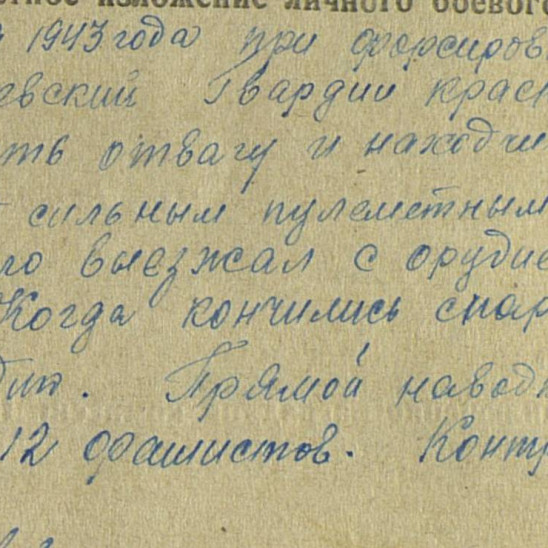 тное изложение личного боевого
1943 года при форсиров
евский Гвардии крас
ть отвагу и находчи
сильным пулеметным
ло выезжал с орудие
Когда кончились снар
Прямой наводк
12 фашистов. Контр